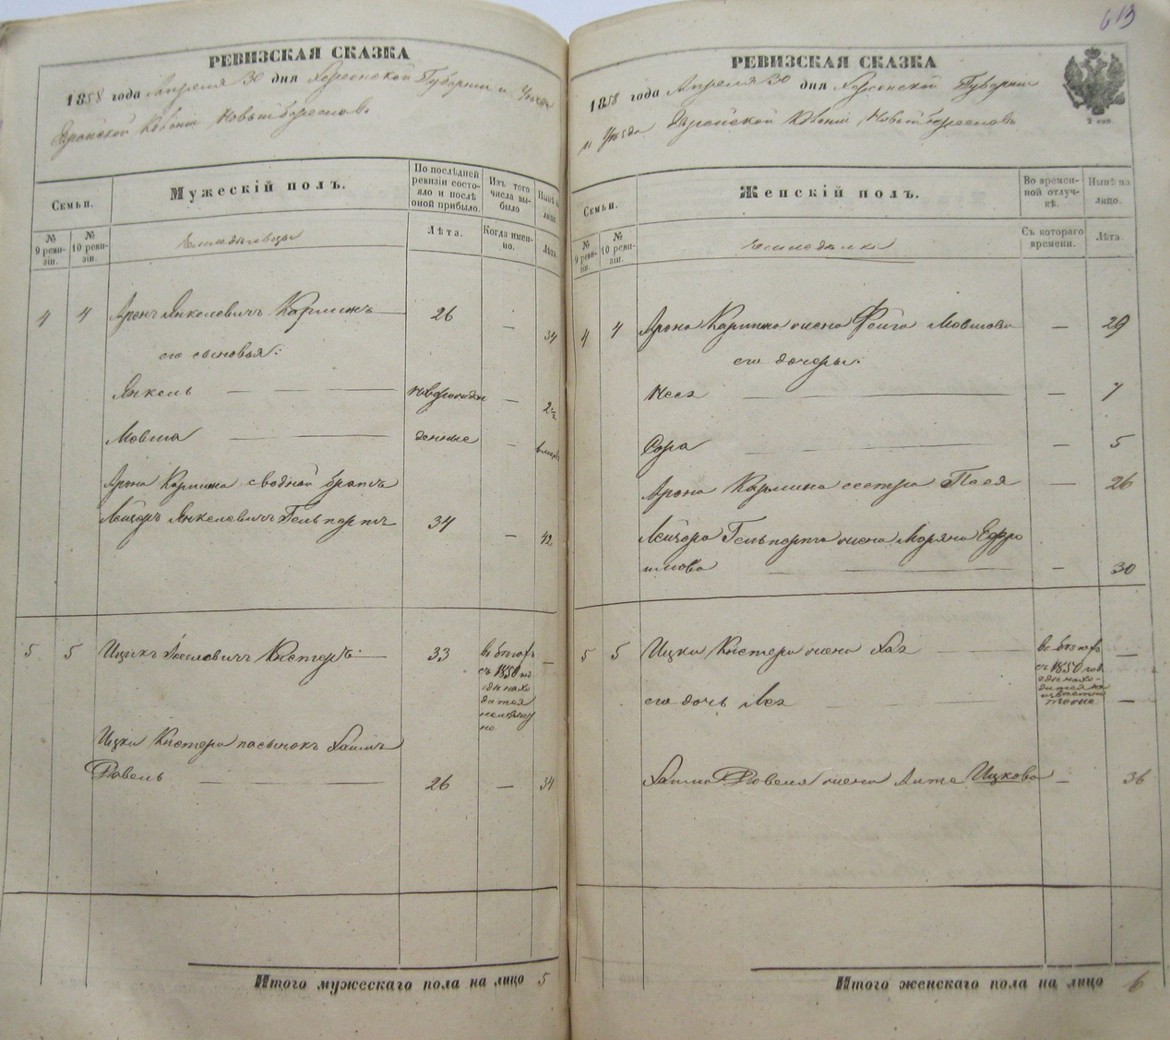 613
РЕВИЗСКАЯ СКАЗКА
1858 года Апреля 30 дня Херсонской Губернии и Уезда
Еврейской Колонии Новый Береслав
Семьи.
Мужескій полъ.
По послѣдней ревизіи состояло и послѣ оной прибыло.
Изъ того числа выбыло
Нынѣ на лицо.
№ 9 ревизіи.
№ 10 ревизіи.
Лѣта.
Когда именно.
Лѣта.
4 4 Аронъ Янкелевичъ Карлинъ 26 — 34
его сыновья:
Янкель — — новорожден — 2½
Мовша — — денные —
Арона Карлина сводной братъ
Лейзоръ Янкелевичъ Гельпортъ 34 — 42
5 5 Ицикъ Кистеръ 33 —
съ 1850
Ицки Кистера пасынокъ Хаимъ
Ровель — — 26 — 34
Итого мужескаго пола на лицо 5
РЕВИЗСКАЯ СКАЗКА
1858 года Апреля 30 дня Херсонской Губернии
и Уезда Еврейской Колонии Новый Береславъ
2 коп.
Семьи.
Женскій полъ.
Во временной отлучкѣ.
Нынѣ на лицо.
№ 9 ревизіи.
№ 10 ревизіи.
Съ котораго времени.
Лѣта.
4 4 Арона Карлина жена Фейга Мовшова — 29
его дочеры:
Неса — — — 7
Сора — — — 5
Арона Карлина сестра Пася — 26
Лейзора Гельпорта жена Марьяна Ефро
имова — — — 30
5 5 Ицки Кистера жена Хая —
съ 1850 года
его дочь Лея — — —
Хаима Ровеля жена Ицкова — 36
Итого женскаго пола на лицо 6